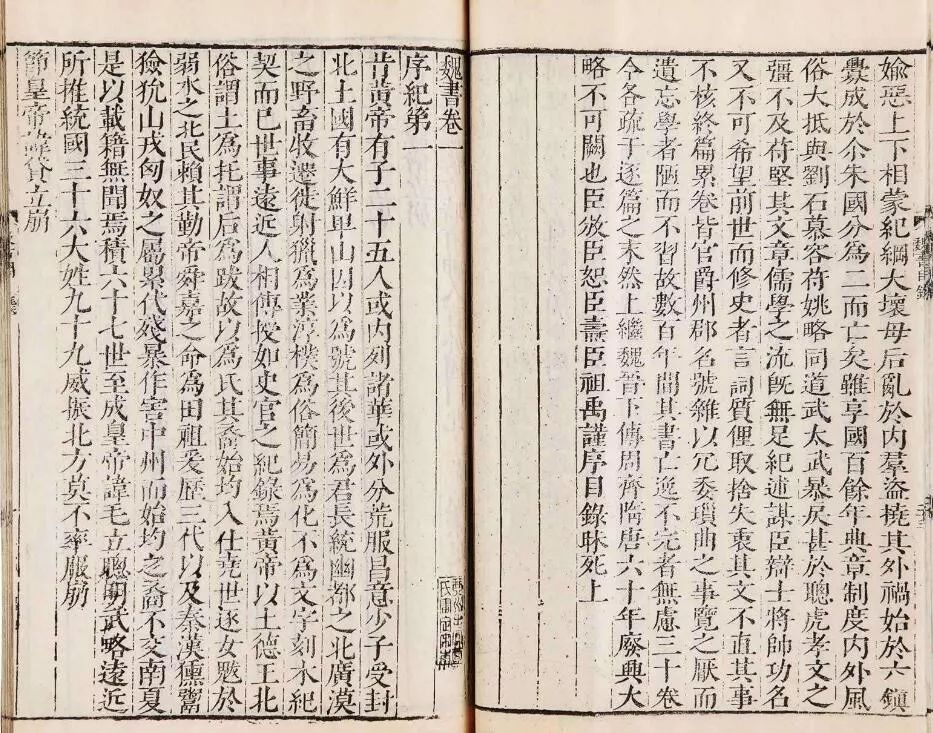 媮惡上下相蒙紀綱大壞母后亂於內羣盜撓其外禍始於六鎮
釁成於尒朱國分為二而亡矣雖享國百餘年典章制度內外風
俗大抵與劉石慕容苻姚略同道武太武暴戾甚於聰虎孝文之
彊不及苻堅其文章儒學之流旣無足紀述謀臣辯士將帥功名
又不可希望前世而修史者言詞質俚取捨失衷其文不直其事
不核終篇累卷皆官爵州郡名號雜以冗委瑣曲之事覽之厭而
遺忘學者陋而不習故數百年間其書亡逸不完者無慮三十卷
今各疏于逐篇之末然上繼魏晉下傳周齊隋唐六十年廢興大
略不可闕也臣攽臣恕臣燾臣祖禹謹序目錄昧死上
魏書卷一
序紀第一
昔黃帝有子二十五人或內列諸華或外分荒服昌意少子受封
北土國有大鮮卑山因以為號其後世為君長統幽都之北廣漠
之野畜牧遷徙射獵為業淳樸為俗簡易為化不為文字刻木紀
契而已世事遠近人相傳授如史官之紀錄焉黃帝以土德王北
俗謂土為托謂后為跋故以為氏其裔始均入仕堯世逐女魃於
弱水之北民賴其勤帝舜嘉之命為田祖爰歷三代以及秦漢獯鬻
獫狁山戎匈奴之屬累代殘暴作害中州而始均之裔不交南夏
是以載籍無聞焉積六十七世至成皇帝諱毛立聰明武略遠近
所推統國三十六大姓九十九威振北方莫不率服崩
節皇帝諱貸立崩